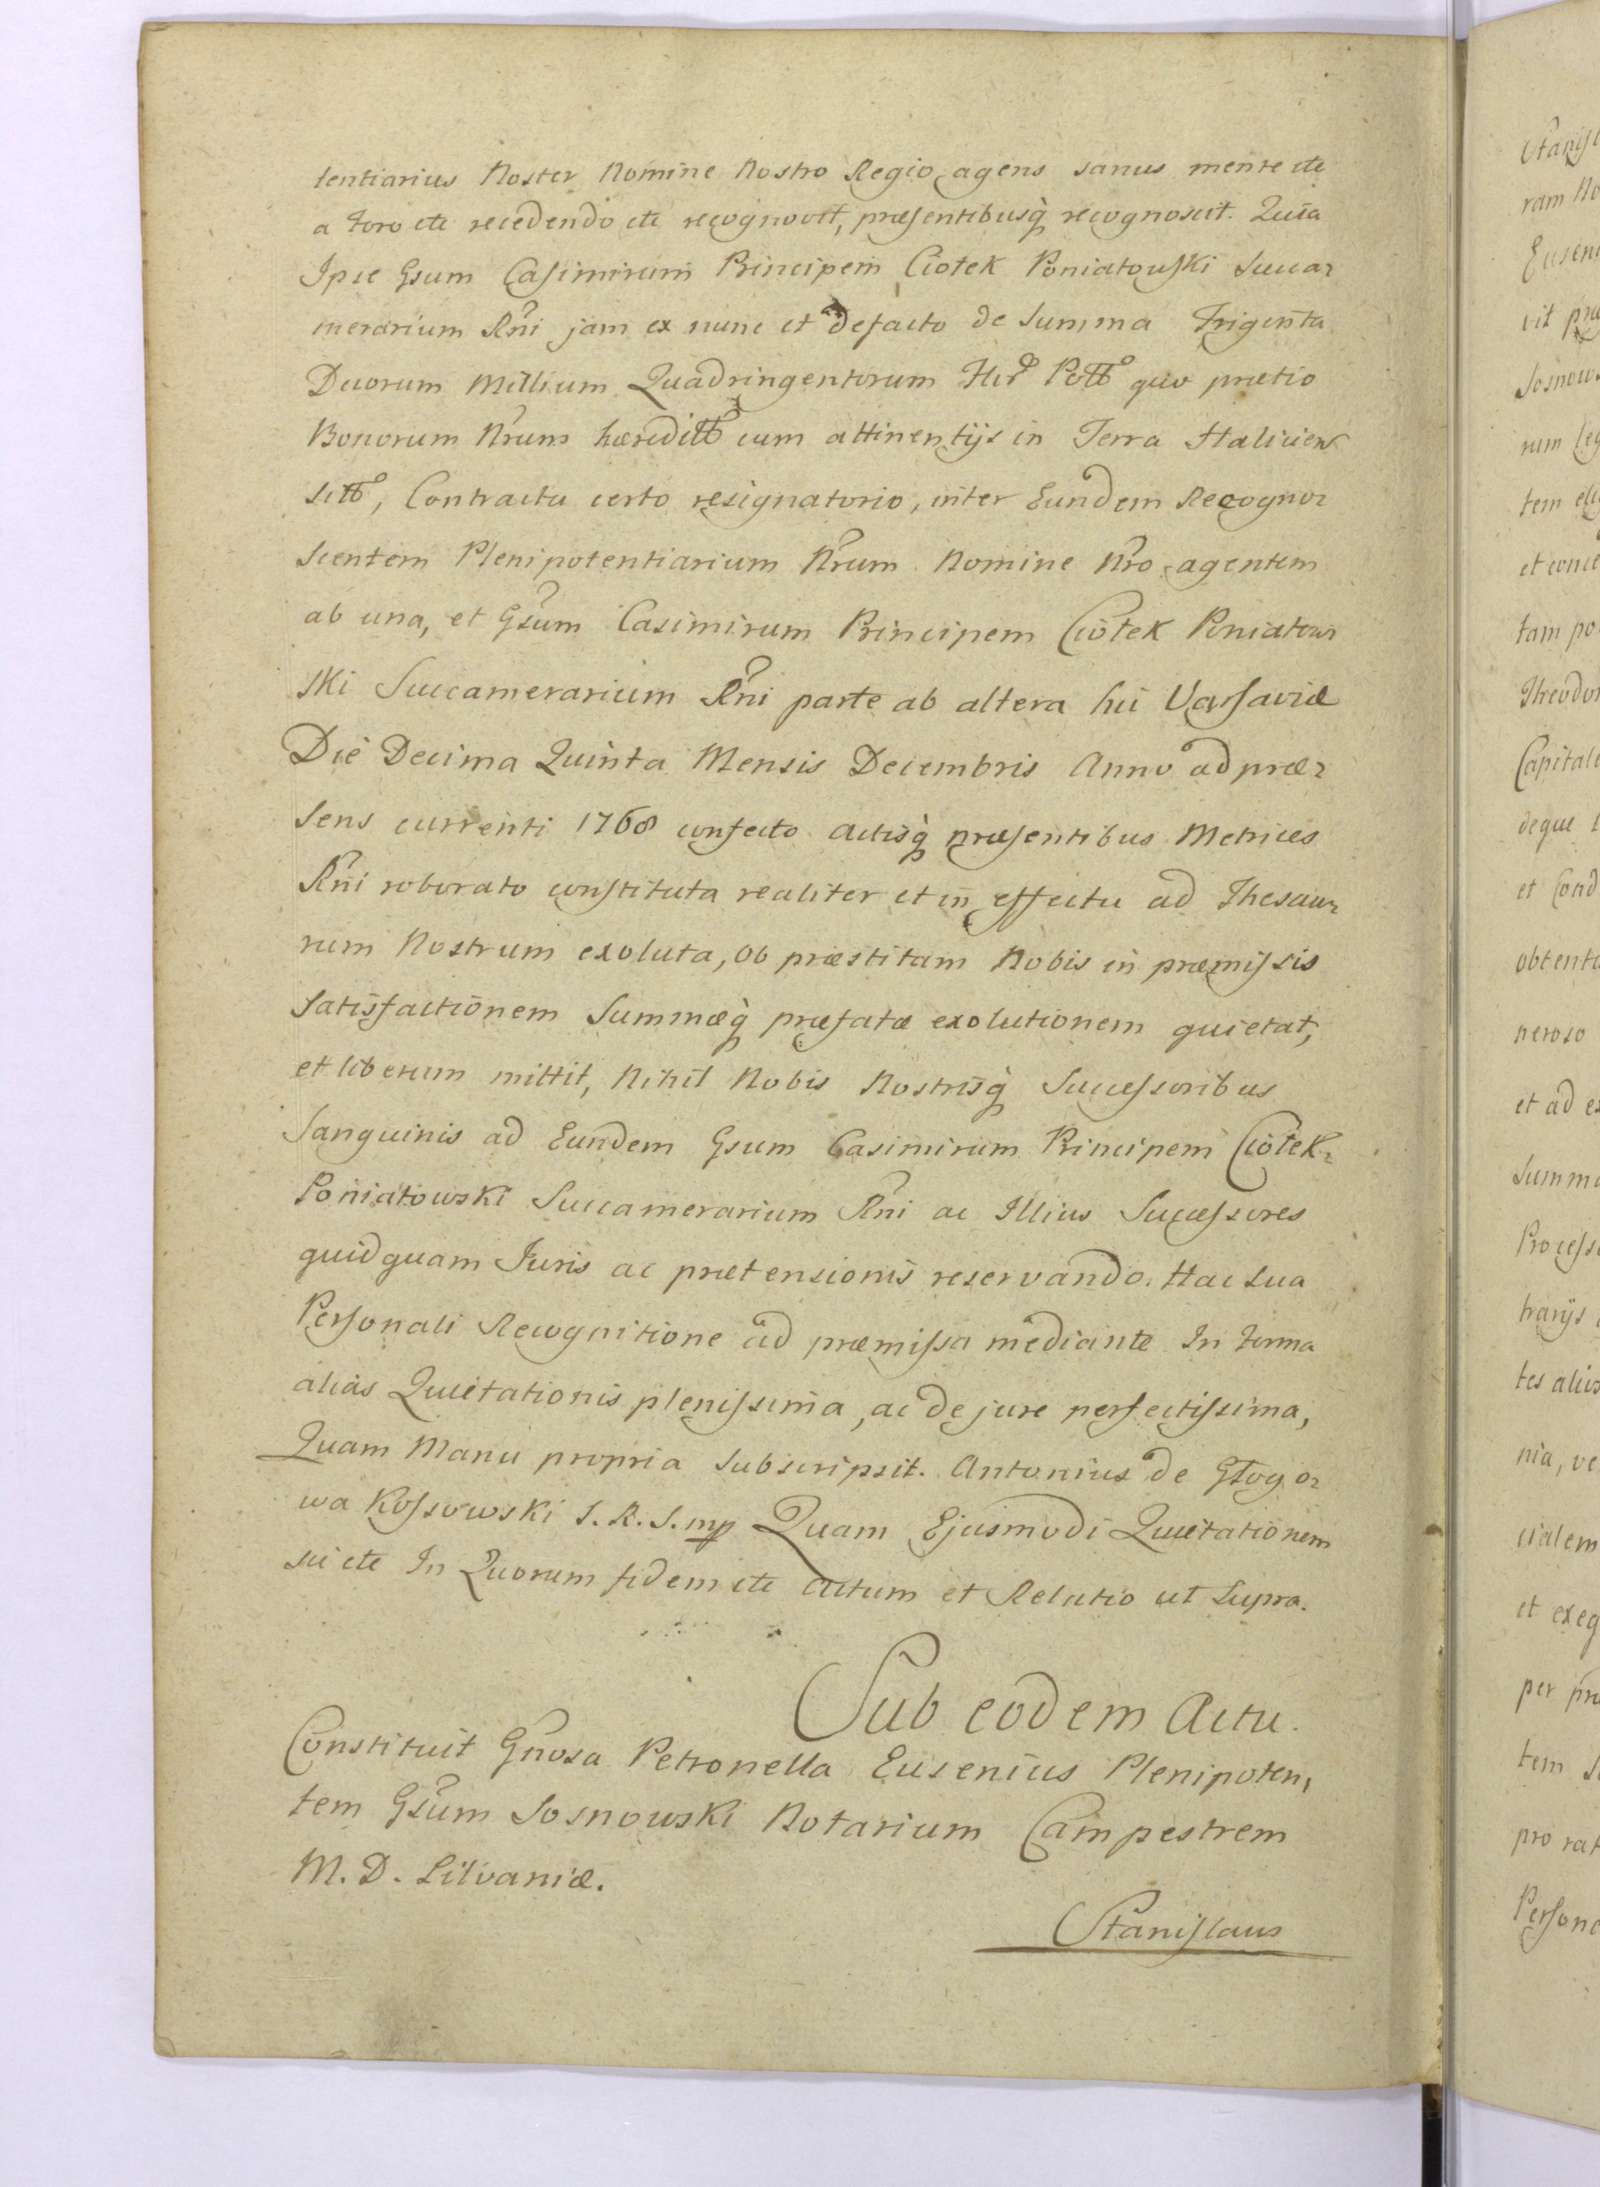 tentiarius Noster Nomine Nostro Regio agens sanus mente etc
a foro etc recedendo etc recognovit, præsentibusq́ recognoscit. Quia
Ipse Gsum Casimirum Principem Ciołek Poniatowski Succa=
merarium Rñi jam ex nunc et defacto de Summa Triginta
Duorum Millium Quadringentorum quo prætio
Bonorum Nrum cum attinentijs in Terra Halicien
Contractu certo resignatorio, inter Eundem Recogno=
scentem Plenipotentiarium Nrum Nomine Nro agentem
ab una, et Gsum Casimirum Principem Ciołek Poniatow=
ski Succamerarium Rñi parte ab altera hic Varsaviæ
Die Decima Quinta Mensis Decembris Anno ad præ=
sens currenti 1768 confecto Actisq́ præsentibus Metrices
Rñi roborato constituta realiter et in effectu ad Thesau=
rum Nostrum exoluta, ob præstitam Nobis in præmissis
satisfactionem Summæq́ præfatæ exolutionem quietat,
et liberum mittit, Nihil Nobis Nostrisq́ Successoribus
Sanguinis ad Eundem Gsum Casimirum Principem Ciołek=
Poniatowski Succamerarium Rñi ac Illius Successores
quidquam Juris ac prætensionis reservando. Hac Sua
Personali Recognitione ad præmissa mediante In forma
alias Quietationis plenissima, ac de jure perfectissima,
Quam Manu propria subscripsit. Antonius de Głogo=
wa Kossowski S. R. S. mp Quam Ejusmodi Quietationem
sic etc In Quorum fidem etc Actum et Relatio ut Supra.
Sub eodem Actu.
Constituit Gnosa Petronella Eusenius Plenipoten=
tem Gsum Sosnowski Notarium Campestrem
M. D. Litvaniæ.
Stanislaus